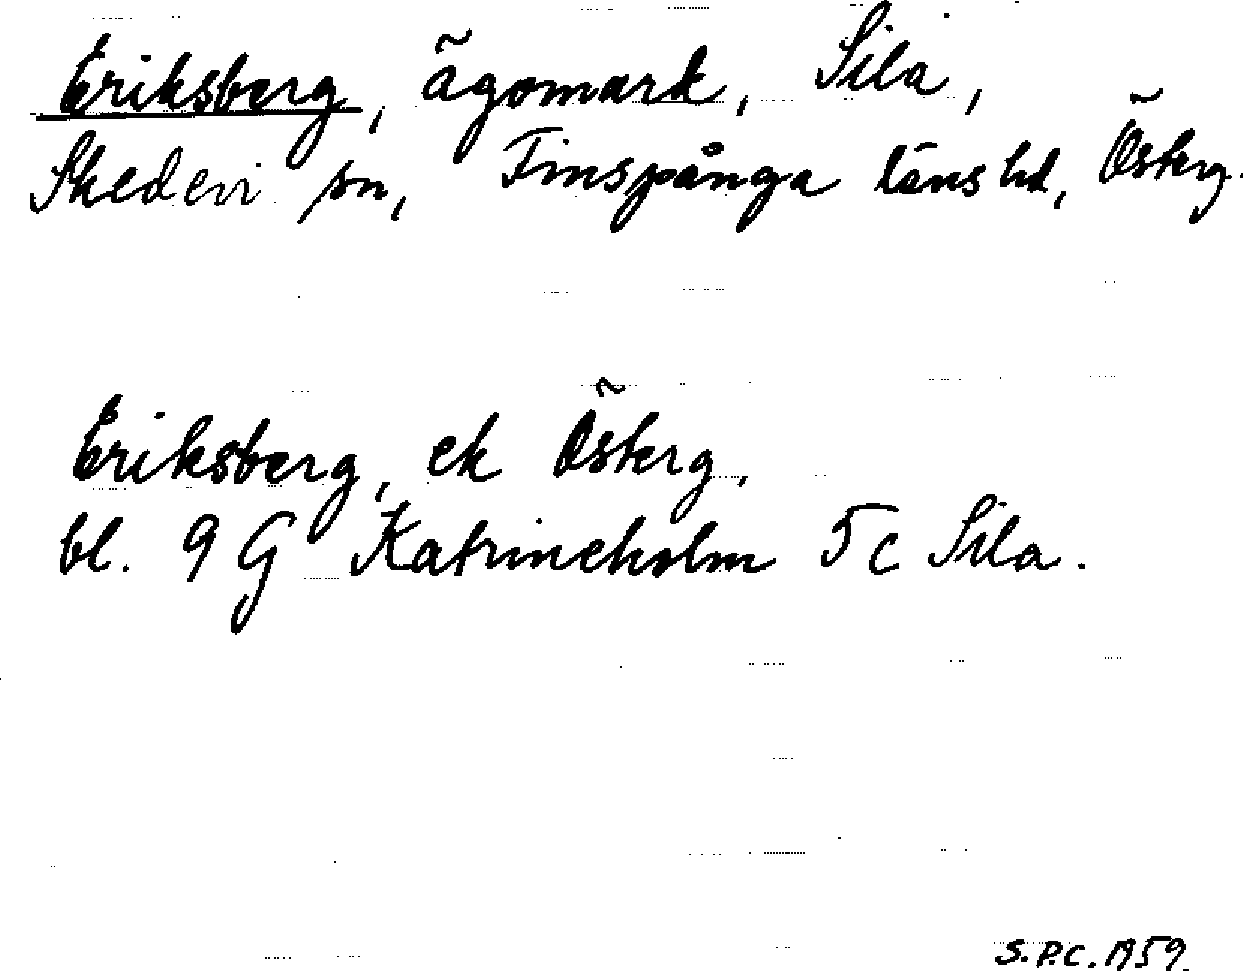 Eriksberg, ägomark, Sila,
Skedevi sn, Finspånga läns hd, Österg.
Eriksberg, ek Österg,
bl. 9 G Katrineholm 5 c Sila.
S.P.C. 1959